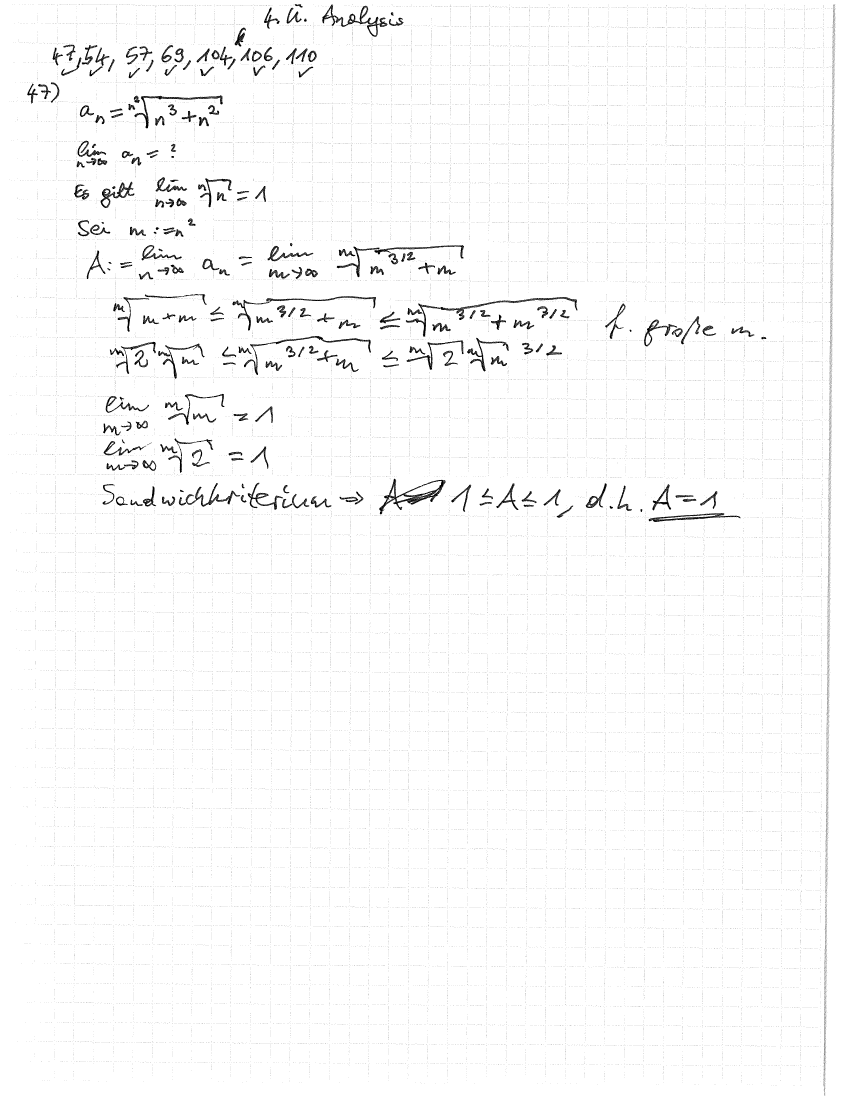 4. Ü. Analysis
47, 54, 57, 69, 104, 106, 110
✓ ✓ ✓ ✓ ✓ ✓ ✓
47)
aₙ = ⁿ²√(n³ + n²)
lim n→∞ aₙ = ?
Es gilt lim n→∞ ⁿ√n = 1
Sei m := n²
A := lim n→∞ aₙ = lim m→∞ ᵐ√(m^3/2 + m)
ᵐ√(m + m) ≤ ᵐ√(m^3/2 + m) ≤ ᵐ√(m^3/2 + m^3/2) f. große m.
ᵐ√2 ᵐ√m ≤ ᵐ√(m^3/2 + m) ≤ ᵐ√2 ᵐ√m ^3/2
lim m→∞ ᵐ√m = 1
lim m→∞ ᵐ√2 = 1
Sandwichkriterium ⇒ 1 ≤ A ≤ 1, d.h. A = 1